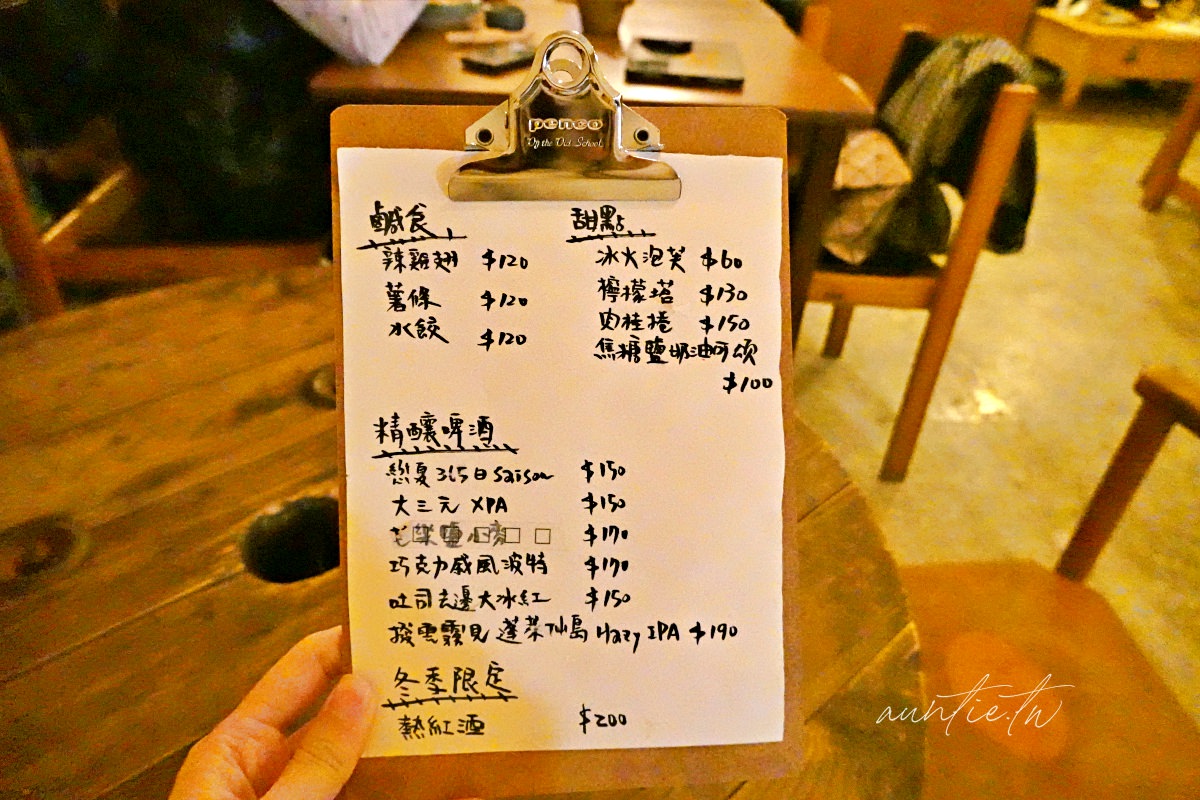 penco
鹹食
辣雞翅 $120
薯條 $120
水餃 $120
甜點
冰火泡芙 $60
檸檬塔 $130
肉桂捲 $150
焦糖鹽奶油可頌
$100
精釀啤酒
戀夏365日 Saison $150
大三元 XPA $150
芭樂鹽小麥 $170
巧克力威風波特 $170
吐司去邊大冰紅 $150
撥雲霧見蓬萊仙島 Hazy IPA $190
冬季限定
熱紅酒 $200
auntie.tw